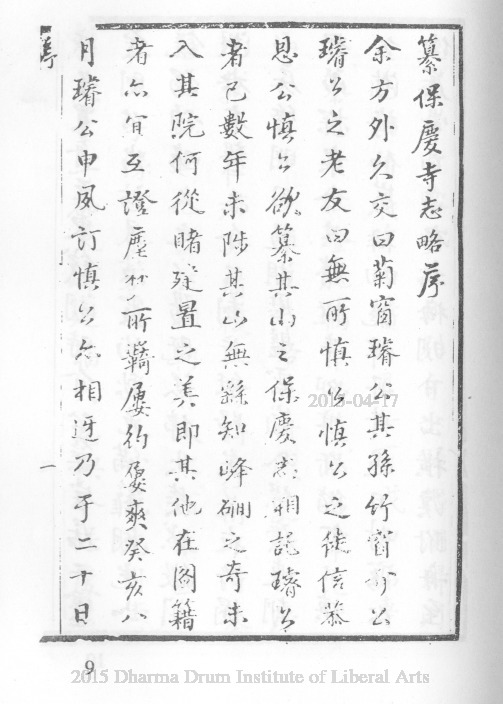 纂保慶寺志略序
余方外久交曰菊窗璿公其孫竹窗介公
璿公之老友曰無所慎公慎公之徒信恭
恩公慎公欲纂其山之保慶志相託璿公
者已數年未陟其山無繇知峰磵之奇未
入其院何從睹建置之美即其他在圖籍
者亦宜互證塵所羈屢約屢爽癸亥八
月璿公申夙訂慎公亦相迓乃于二十日
序
一
2015-04-17
9
2015 Dharma Drum Institute of Liberal Arts